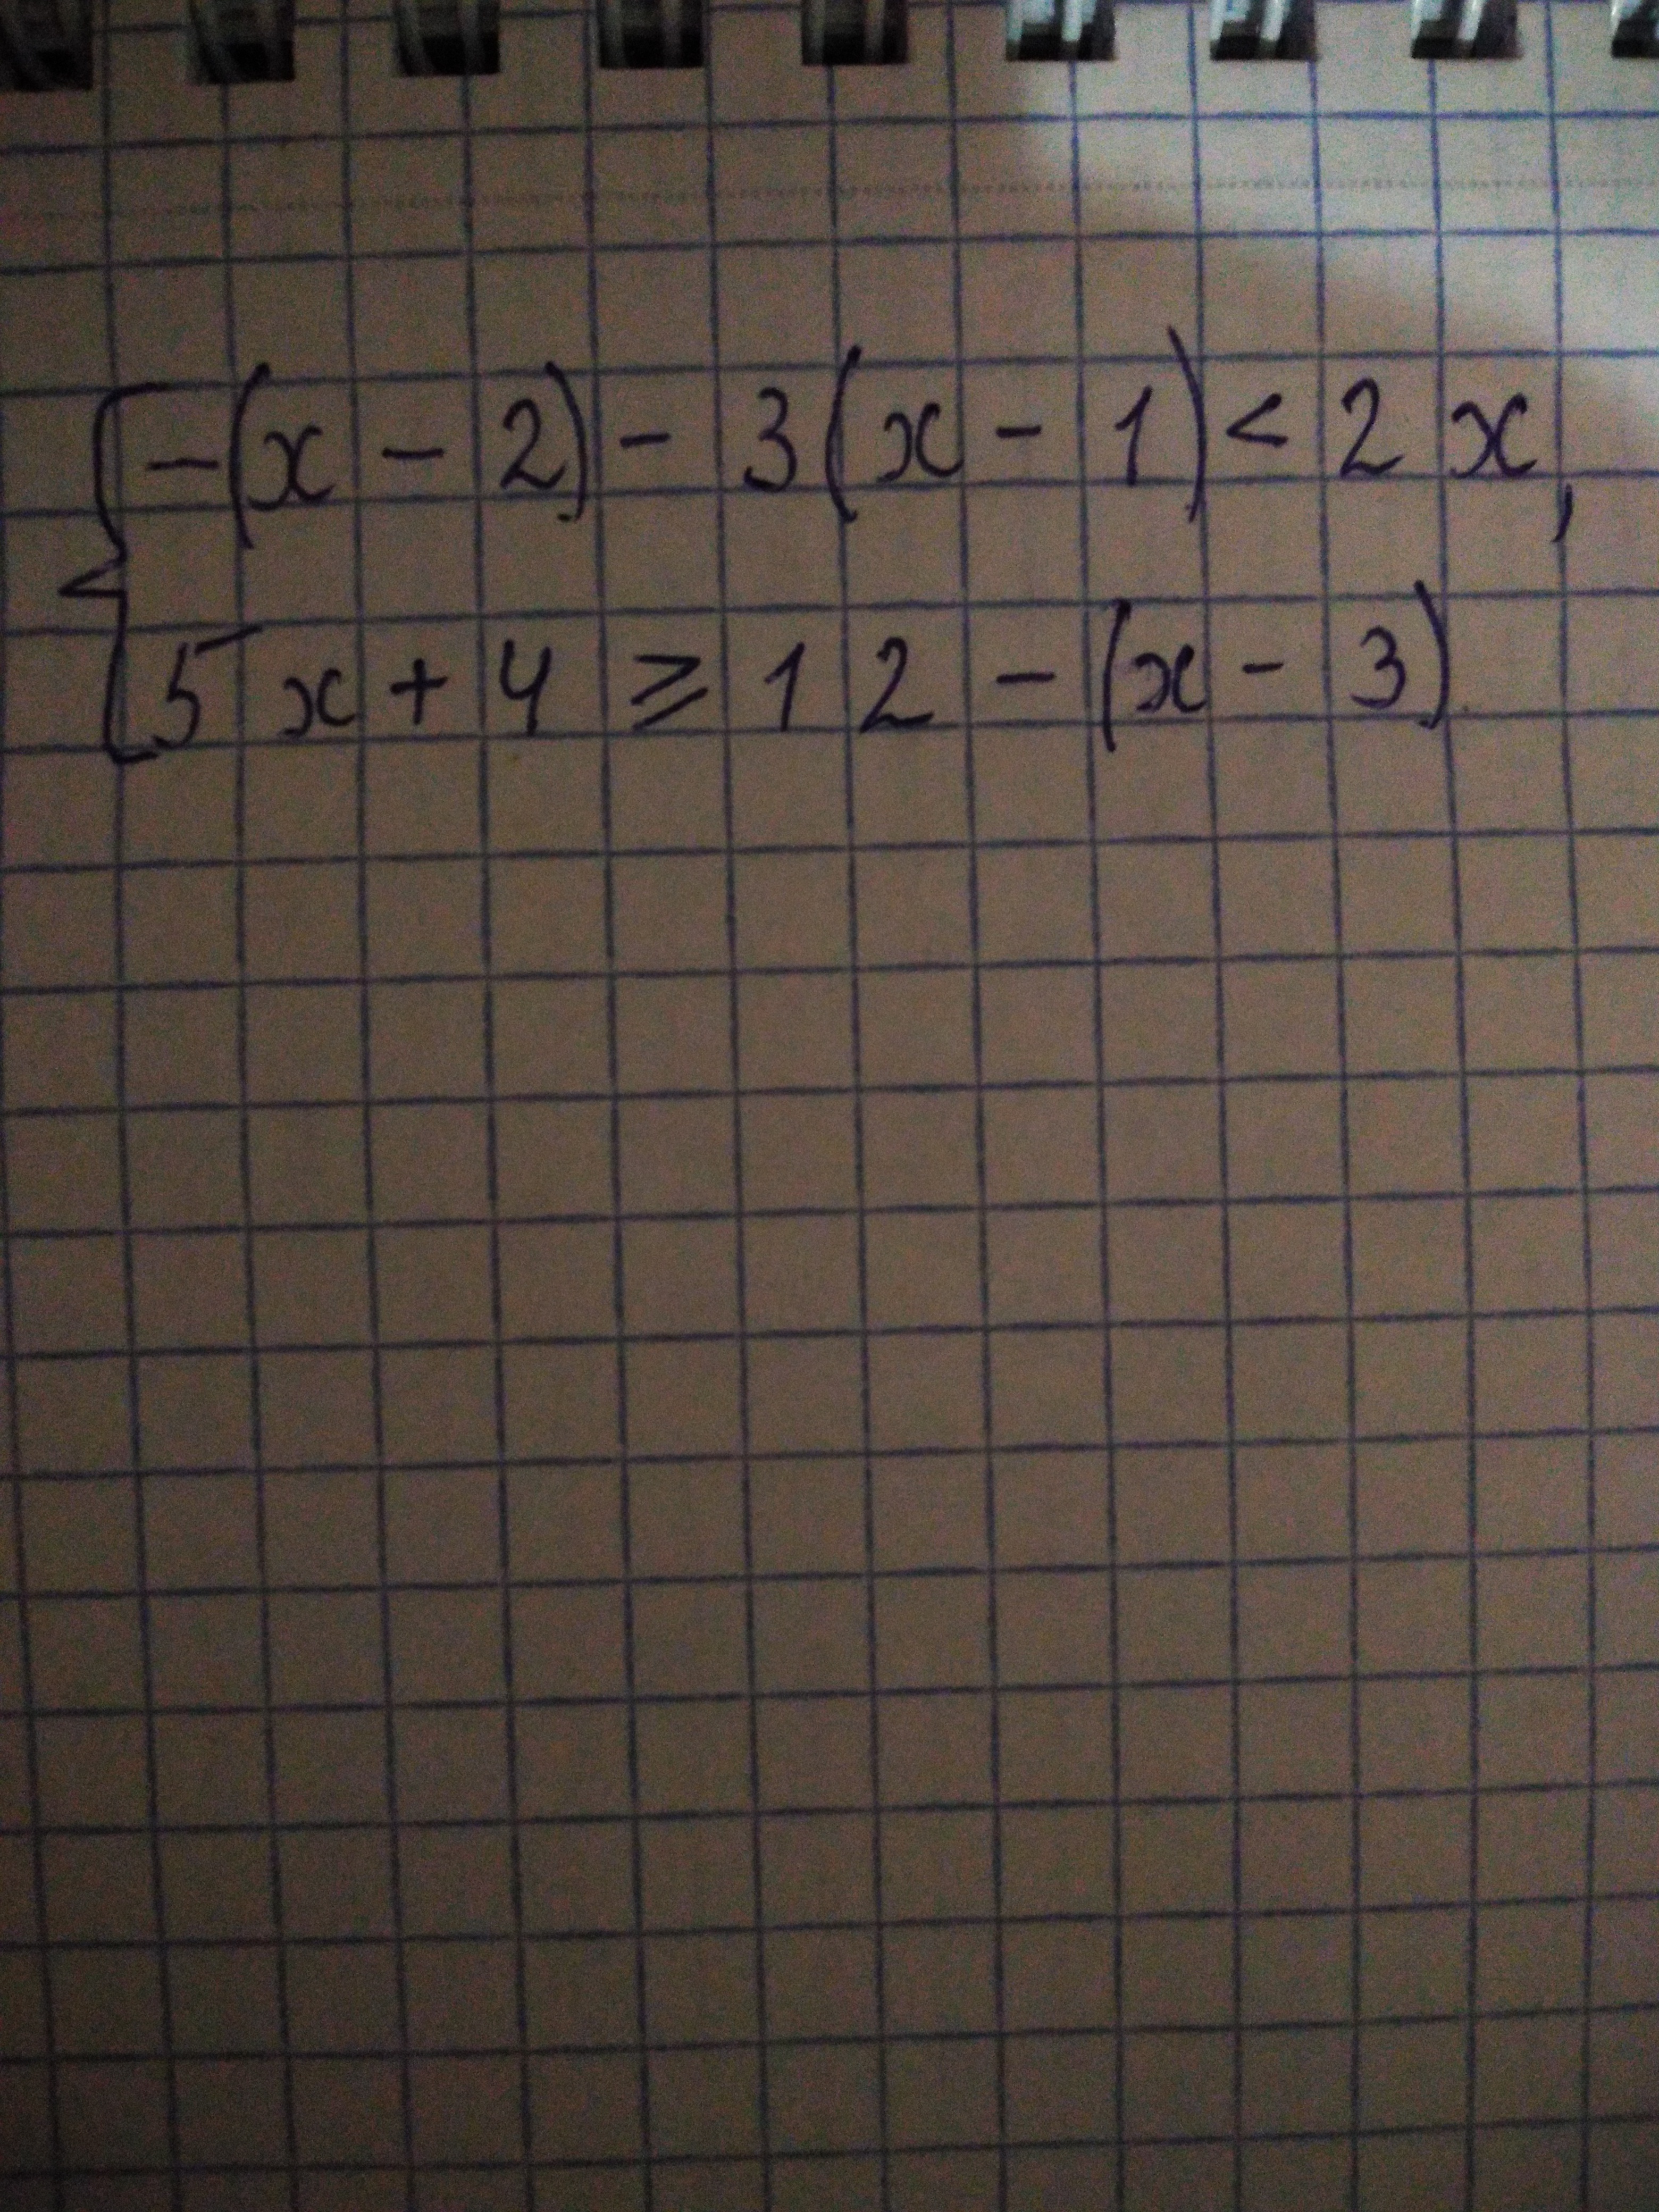 -(x - 2) - 3(x - 1) < 2x,
5x + 4 ⩾ 12 - (x - 3)